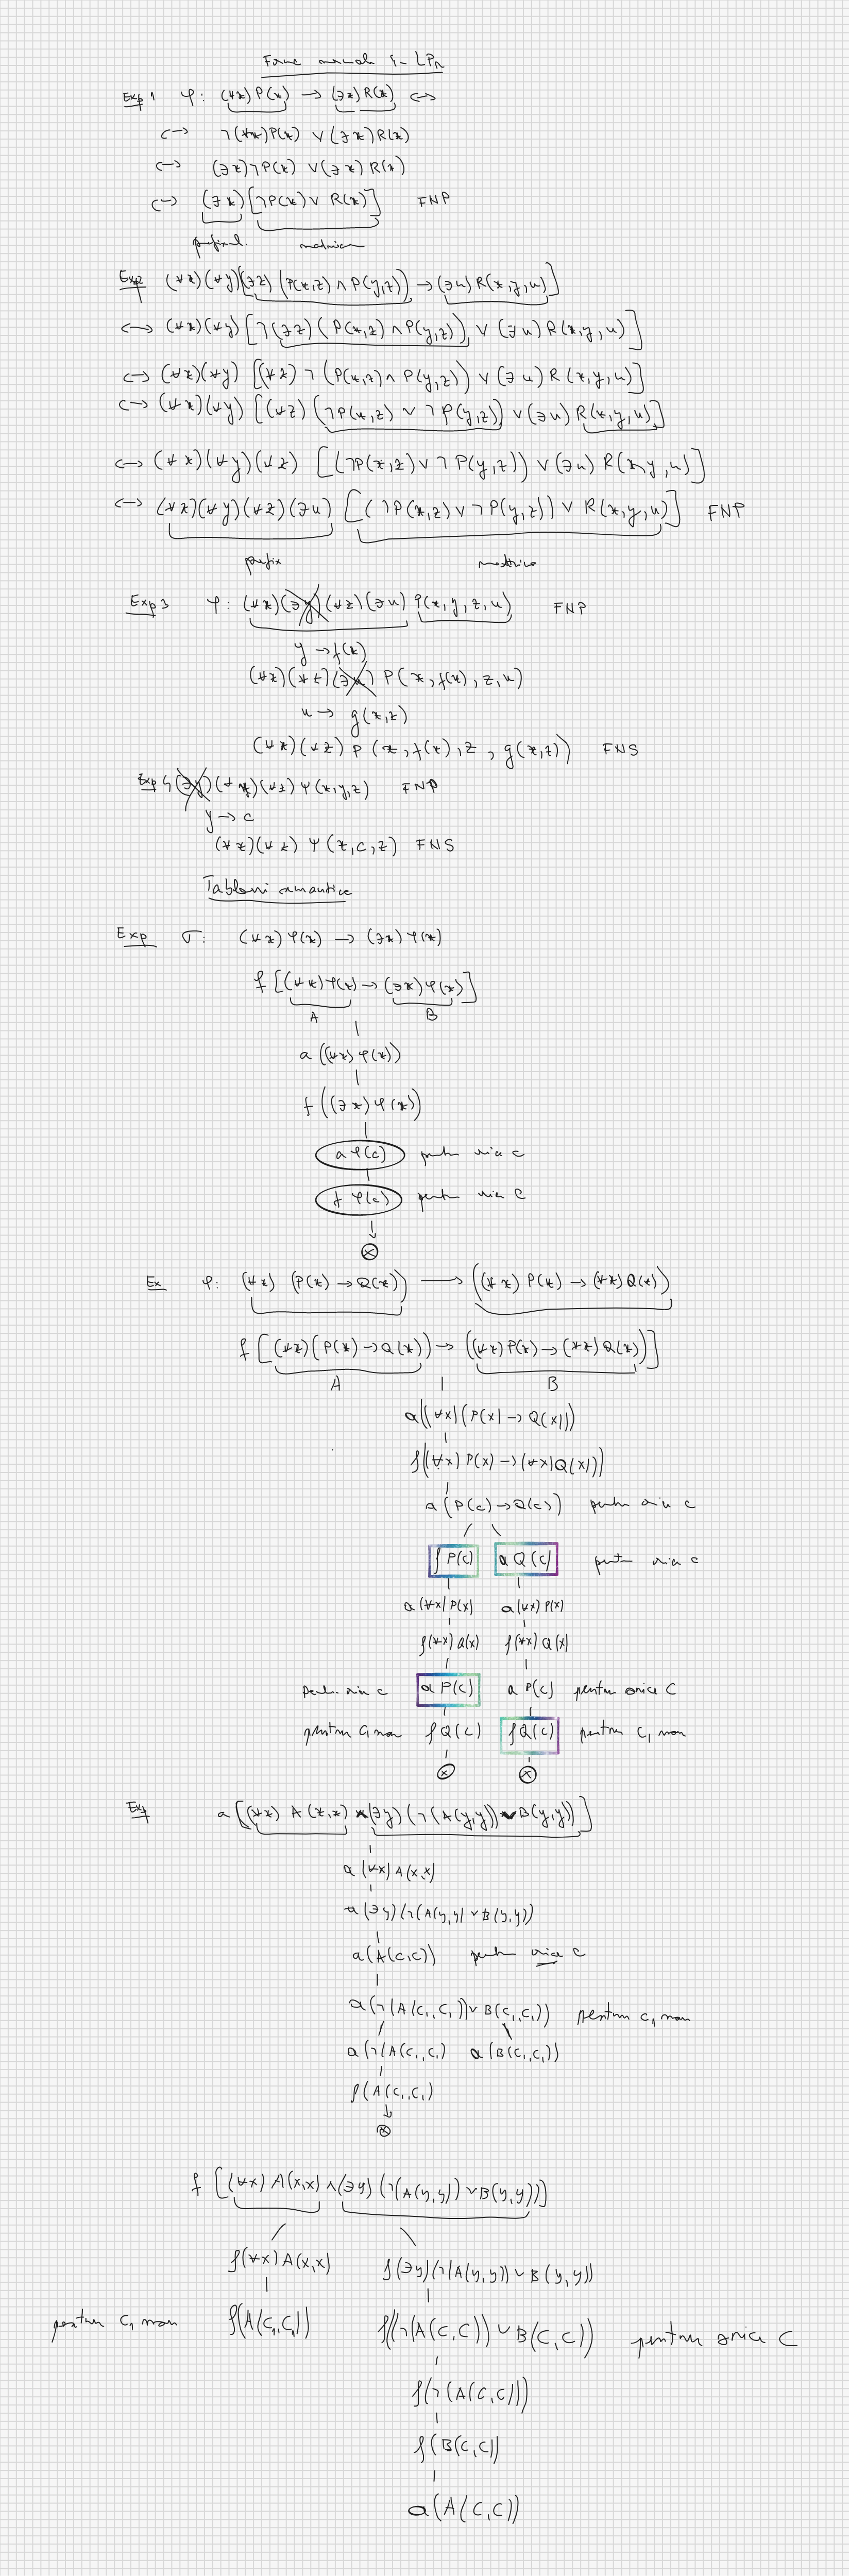 Forme normale în LPr
Exp 1 φ: (∀x)P(x) → (∃x)R(x) ↔
↔ ¬(∀x)P(x) ∨ (∃x)R(x)
↔ (∃x)¬P(x) ∨ (∃x)R(x)
↔ (∃x)[¬P(x) ∨ R(x)] FNP
prefixul matricea
Exp2 (∀x)(∀y)[(∃z)(P(x,z) ∧ P(y,z)) → (∃u)R(x,y,u)]
↔ (∀x)(∀y)[¬(∃z)(P(x,z) ∧ P(y,z)) ∨ (∃u)R(x,y,u)]
↔ (∀x)(∀y)[(∀z)¬(P(x,z) ∧ P(y,z)) ∨ (∃u)R(x,y,u)]
↔ (∀x)(∀y)[(∀z)(¬P(x,z) ∨ ¬P(y,z)) ∨ (∃u)R(x,y,u)]
↔ (∀x)(∀y)(∀z)[(¬P(x,z) ∨ ¬P(y,z)) ∨ (∃u)R(x,y,u)]
↔ (∀x)(∀y)(∀z)(∃u)[(¬P(x,z) ∨ ¬P(y,z)) ∨ R(x,y,u)] FNP
prefix matrice
Exp3 φ: (∀x)(∃y)(∀z)(∃u) P(x,y,z,u) FNP
y → f(x)
(∀x)(∀z)(∃u) P(x,f(x),z,u)
u → g(x,z)
(∀x)(∀z) P(x,f(x),z,g(x,z)) FNS
Exp 4 (∃y)(∀x)(∀z) Ψ(x,y,z) FNP
y → c
(∀x)(∀z) Ψ(x,c,z) FNS
Tablouri semantice
Exp σ: (∀x)φ(x) → (∃x)φ(x)
f[(∀x)φ(x) → (∃x)φ(x)]
A B
a((∀x)φ(x))
f((∃x)φ(x))
a φ(c) pentru orice c
f φ(c) pentru orice c
⊗
Ex φ: (∀x)(P(x) → Q(x)) → ((∀x)P(x) → (∀x)Q(x))
f[(∀x)(P(x) → Q(x)) → ((∀x)P(x) → (∀x)Q(x))]
A B
a((∀x)(P(x) → Q(x)))
f((∀x)P(x) → (∀x)Q(x))
a(P(c) → Q(c)) pentru orice c
f P(c) a Q(c) pentru orice c
a(∀x)P(x) a(∀x)P(x)
f(∀x)Q(x) f(∀x)Q(x)
pentru orice c a P(c) a P(c) pentru orice c
pentru c₁ nou f Q(c) f Q(c) pentru c₁ nou
⊗ ⊗
Exp a[(∀x)A(x,x) ∧ (∃y)(¬(A(y,y)) ∨ B(y,y))]
a(∀x)A(x,x)
a(∃y)(¬(A(y,y) ∨ B(y,y))
a(A(c,c)) pentru orice c
a(¬(A(c₁,c₁)) ∨ B(c₁,c₁)) pentru c₁ nou
a(¬(A(c₁,c₁) a(B(c₁,c₁))
f(A(c₁,c₁)
⊗
f[(∀x)A(x,x) ∧ (∃y)(¬(A(y,y)) ∨ B(y,y))]
f(∀x)A(x,x) f(∃y)(¬(A(y,y)) ∨ B(y,y))
pentru c₁ nou f(A(c₁,c₁)) f((¬(A(c,c)) ∨ B(c,c)) pentru orice c
f(¬(A(c,c)))
f(B(c,c))
a(A(c,c))